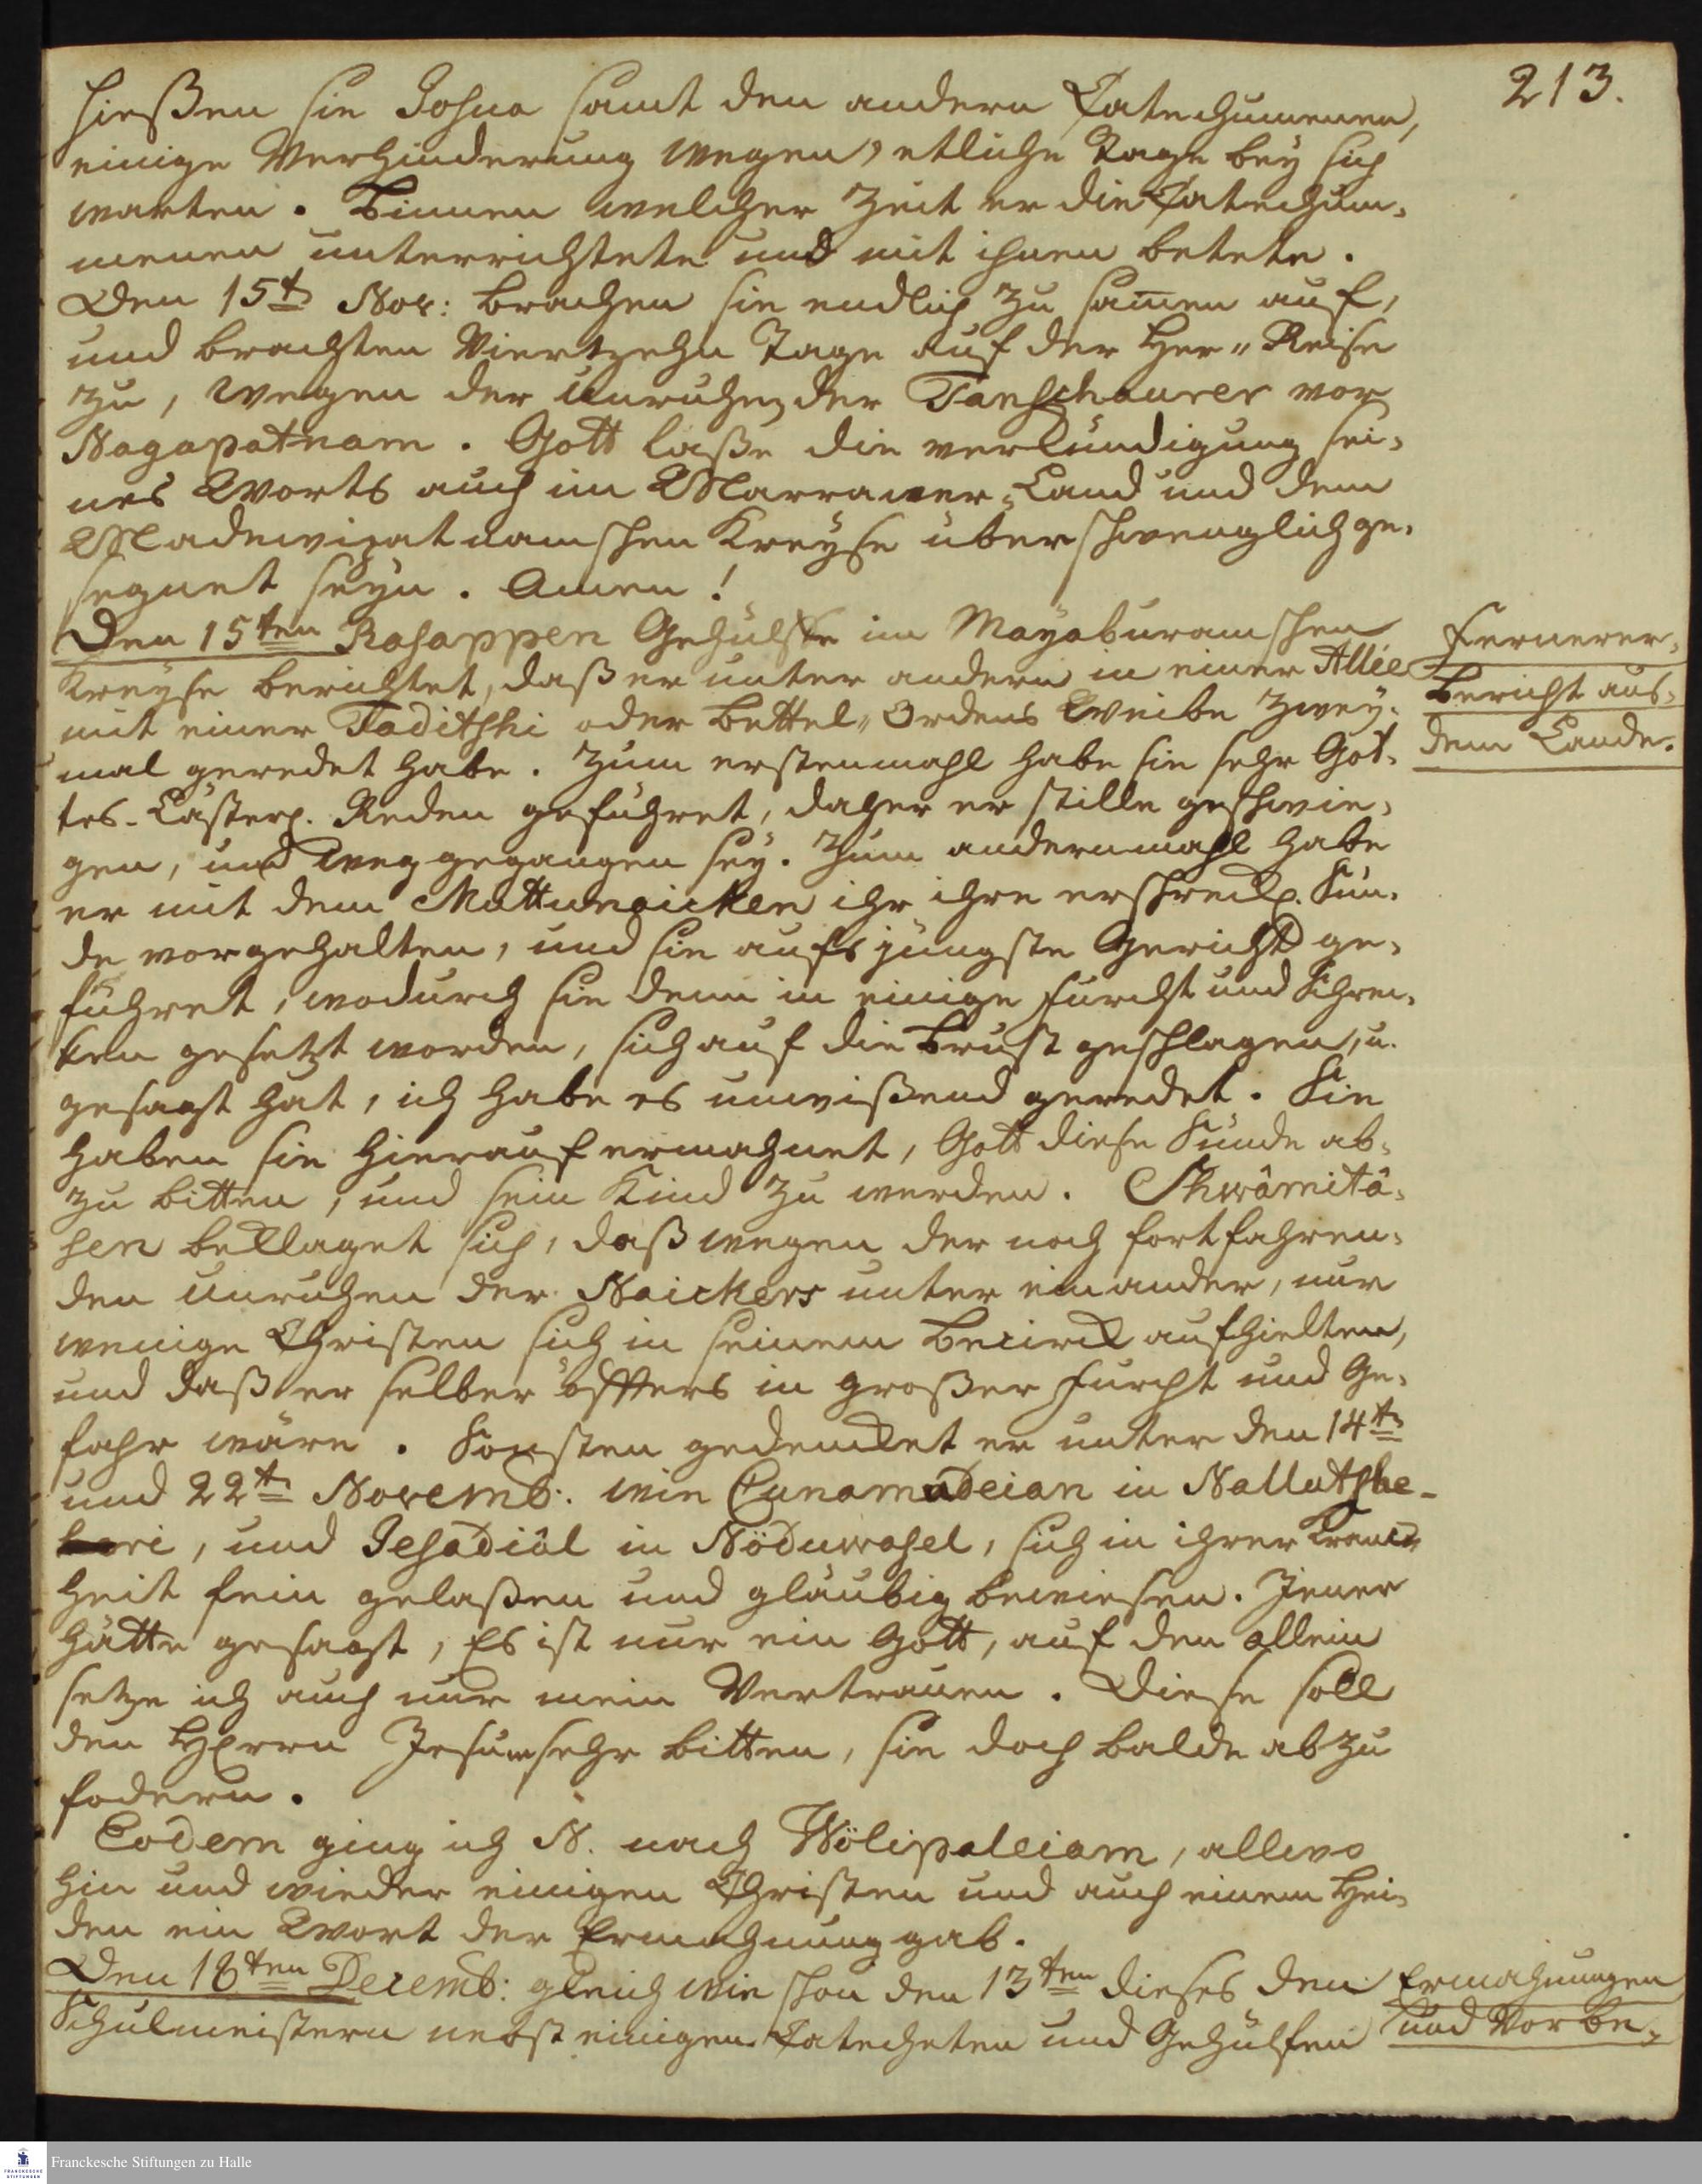 213.
hießen sie Josua samt den andern Catechumenen,
einige Verhinderung wegen, etliche Tage bey sich
warten. Binnen welcher Zeit er die Catechum-
menen unterrichtete und mit ihnen betete.
Den 15t Nov: brachen sie endlich zu samen auf,
und brachten Viertzehn Tage auf der Her-Reise
zu, wegen der Unruhen der Tanschaurer vor
Nagapatnam. Gott laße die verkündigung sei-
nes Worts auch im Marrawer-Land und dem
Madewipatnamschen Kreyse überschwenglich ge-
segnet seyn. Amen!
Den 15ten Rasappen Gehülffe im Mayaburamschen
Kreyse berichtet, daß er unter andern in einer Allée
mit einer Taditschi oder Bettel-Ordens Weibe zwey-
mal geredet habe. Zum erstenmahl habe sie sehr Got-
tes-Lästerl. Reden geführet, daher er stille geschwie-
gen, und weggegangen sey. Zum andernmahl habe
er mit dem Muttunaicken ihr ihre erschreckl. Sün-
de vorgehalten, und sie aufs jüngste Gericht ge-
führet, wodurch sie denn in einige Furcht und Schre-
cken gesetzt worden, sich auf die Brust geschlagen, u.
gesagt hat, ich habe es unwißend geredet. Sie
haben sie hierauf ermahnet, Gott diese Sünde ab-
zu bitten, und sein Kind zu werden. Shwâmitâ-
sen beklaget sich, daß wegen der noch fortfahren-
den Unruhen der Naickers unter einander, nur
wenige Christen sich in seinem Bezirck aufhielten,
und daß er selber öffters in großer Furcht und Ge-
fahr wäre. Sonsten gedencket er unter den 14t
und 22t Novemb: wie Cunamudeian in Nallutshe-
ri, und Jesadiâl in Nöduwasel, sich in ihrer Kranck-
heit fein gelaßen und gläubig bewiesen. Jener
hätte gesagt, Es ist nur ein Gott, auf den allein
setze ich auch nur mein Vertrauen. Diese soll
den HErrn Jesum sehr bitten, sie doch balde ab zu
fodern.
Eodem ging ich N. nach Wölipaleiam, allwo
hin und wieder einigen Christen und auch einem Hei-
den ein Wort der Ermahnung gab.
Den 18ten Decemb: gleich wie schon den 13ten dieses den
Schulmeistern nebst einigen Catecheten und Gehülfen
Fernerer-
Bericht aus-
dem Lande.
Ermahnungen
und Vorbe-
Franckesche Stiftungen zu Halle